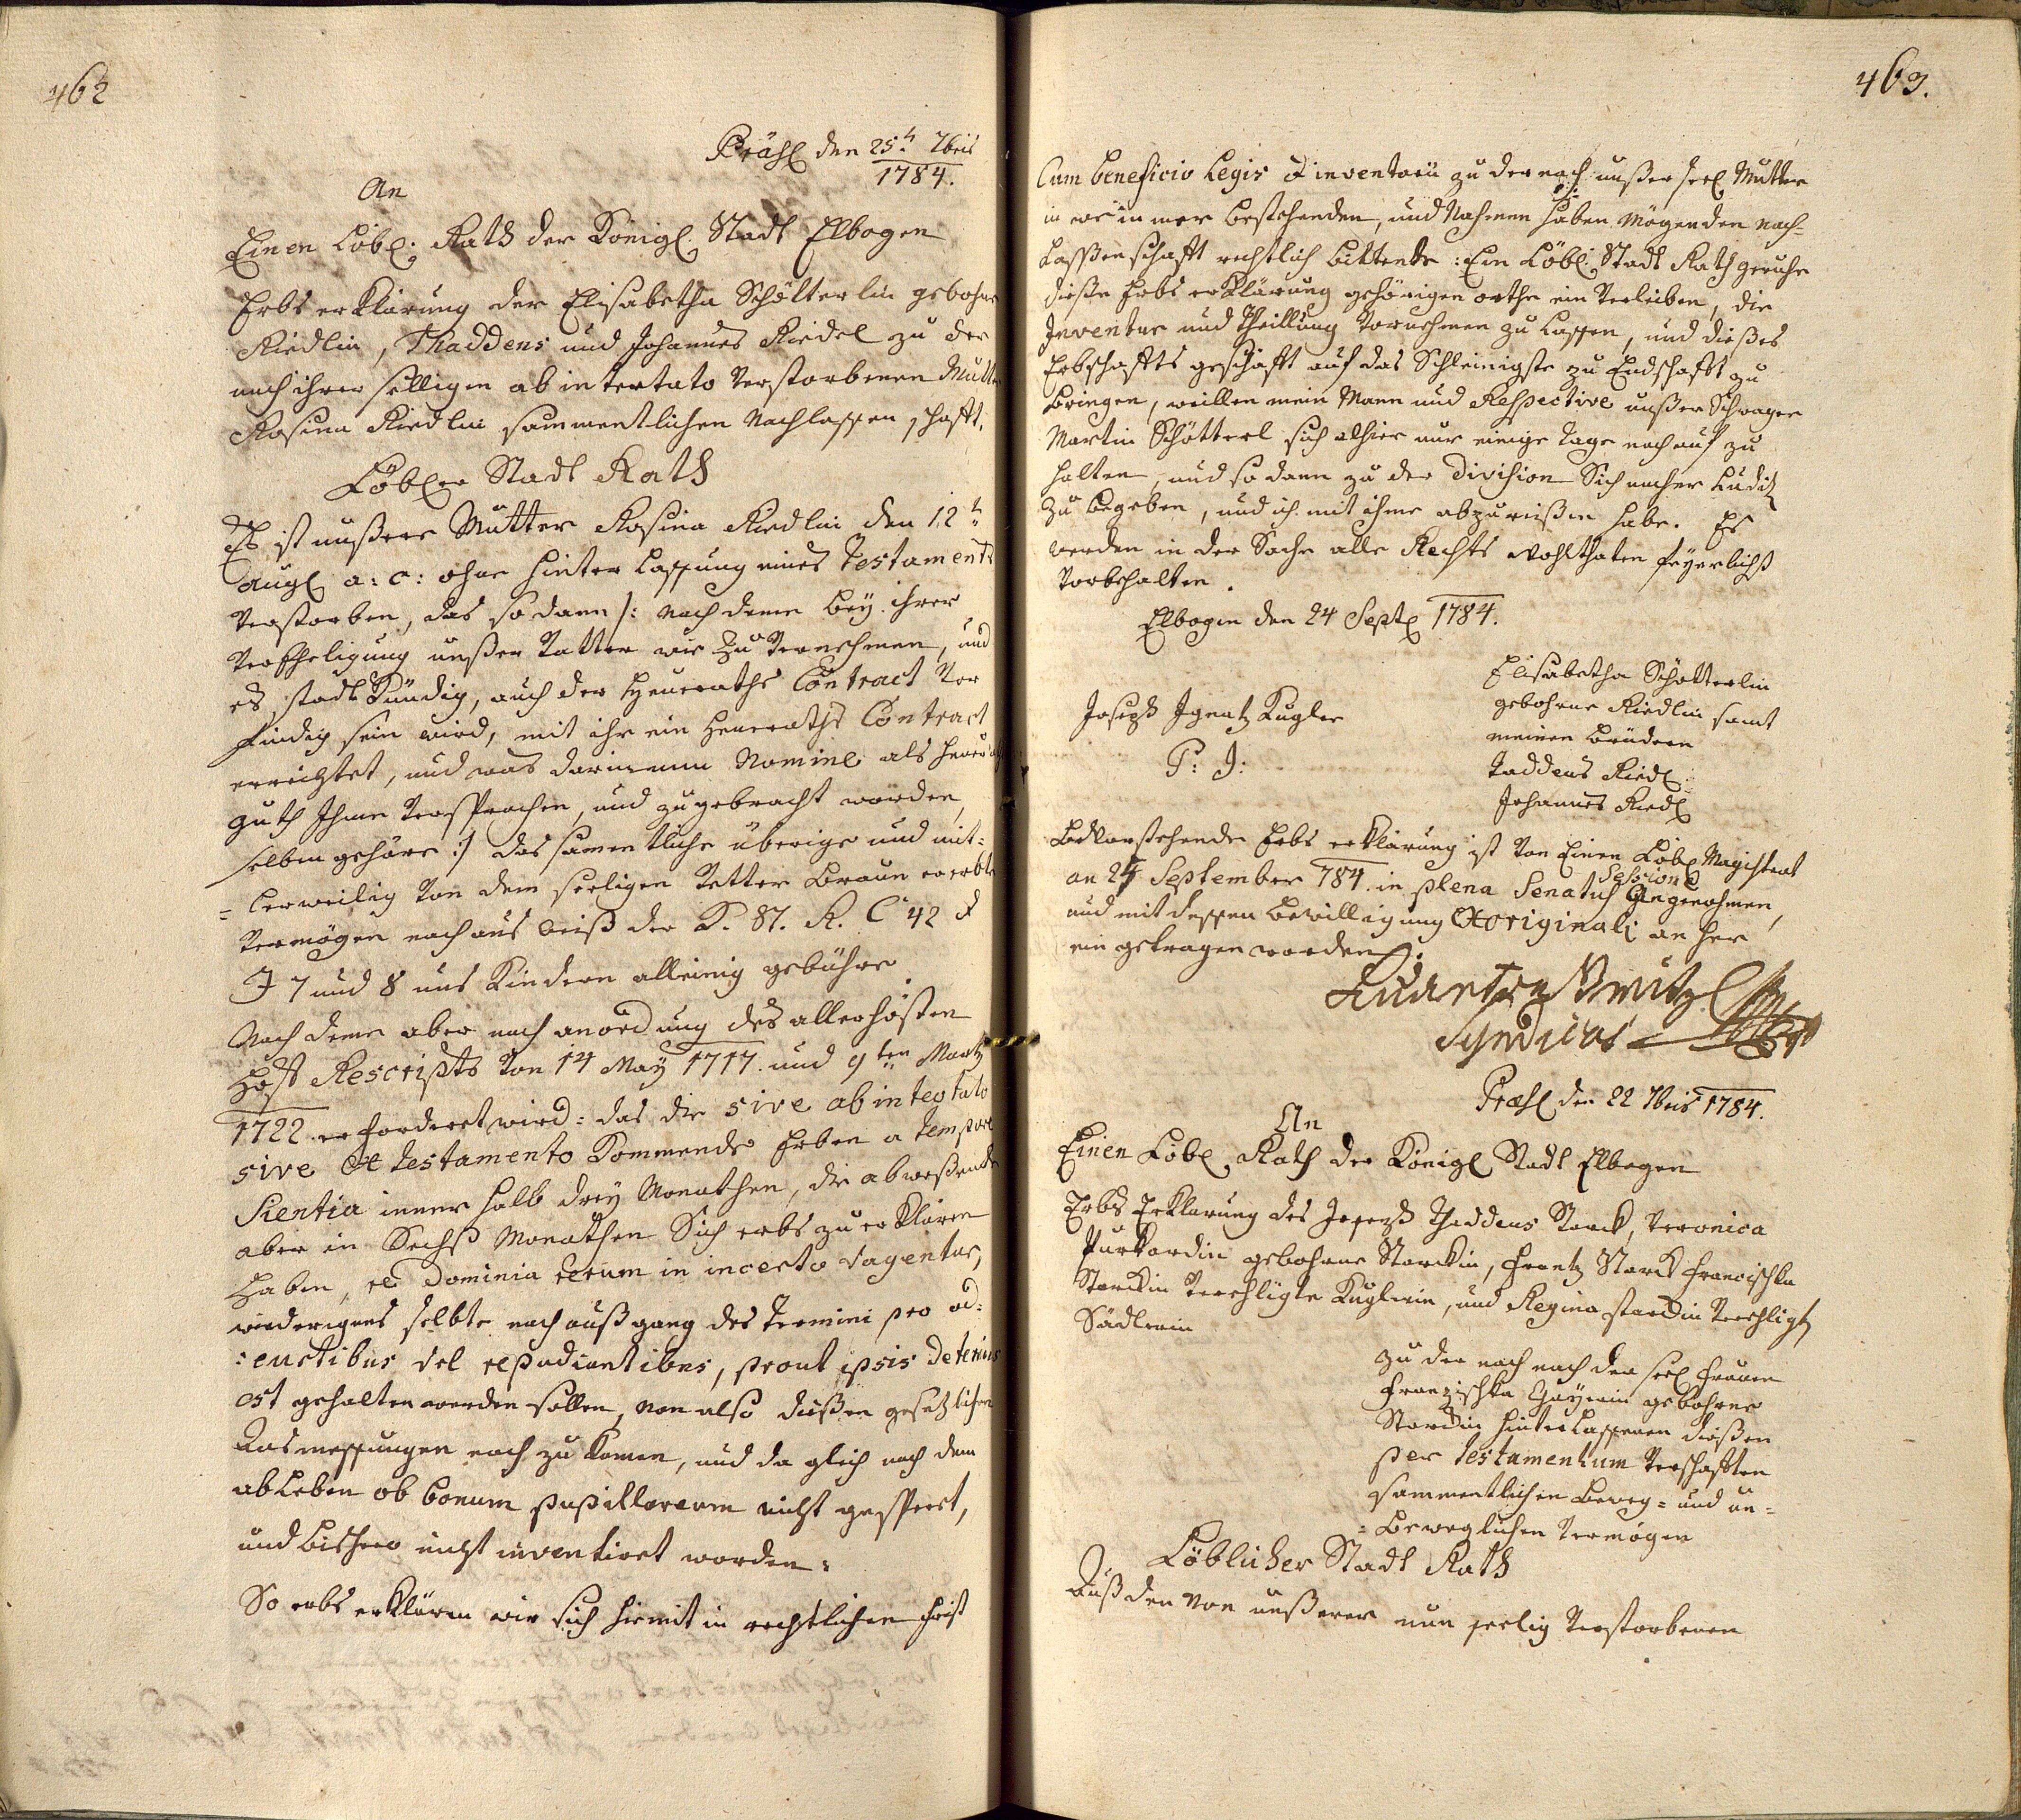 462
Präs. den 25t. 7bris
1784.
An
Einen Löbl. Rath der Königl. Stadt Elbogen
Erbs erklärung der Elisabetha Schötterlin gebohrne
Riedlin, Thaddens und Johannes Riedel zu der
nach ihrer seeligen ab intestato verstorbenen Mutter
Rosina Riedlin sammentlichen Nachlassenschafft.
Löbler Stadt Rath
Es ist unßere Mutter Rosina Riedlin den 12t.
Augl a: c: ohne hinter lassung eines Testaments
verstorben, das so dann /: nach deme bey ihrer
Verehheligung unßer Vatter wie zu vernehmen, und
es stadt kündig, auch der Heuraths Contract vor
findig sein wird, mit ihr ein Heuraths Contract
errichtet, und was darinnen Nomine als Heuraths
guth Ihme versprochen, und zugebracht worden,
selben gehöre :/ das sammentliche überige und mit-
-lerweilig von dem seeligen Vetter Braun ererbte
Vermögen nach aus weiß der K. St. R. C 42 &
J 7 und 8 uns Kindern alleinig gebühre.
Nach deme aber nach anordnung des allerhösten
Hoff Rescripts von 14 May 1717. und 9ten Martz
1722. erforderet wird: das die sive ab intestato
sive ex testamento kommende Erben a tempore
scientia inner halb drey Monathen, die abweßende
aber in Sechß Monathen Sich erbs zu erklären
haben, ne Dominia rerum in incerto vagentur,
wiederigens selbte nach außgang des Termini pro ad:
:euntibus vel repudiantibus, prout ipsis deterius
est gehalten werden sollen, von also dießen gesetzlichen
Ausmessungen nach zu komen, und da gleich nach dem
ableben ob bonum pupillorum nicht gesperrt,
und bishero nicht inventiret worden:
So erbs erklären wir sich hiemit in rechtlicher frist
463.
Cum beneficio Legis & inventarii zu der nach unßer seel. Mutter
in was in mer bestehenden, und Nahmen haben mögenden nach-
Lassenschafft rechtlich bittende: Ein Löbl. Stadt Rath geruhe
dieße Erbs erklärung gehörigen orths ein verleiben, die
Inventur und Theillung vornehmen zu lassen, und dießes
Erbschaffts geschäfft auf das Schleinigste zu Endschafft zu
bringen, weillen mein Mann und Respective unßer Schwager
Martin Schötterl sich alhier nur einige Tage noch auf zu
halten, und so dann zu der Division Sich nacher Luditz
zu begeben, und ich mit ihme abzureißen habe. Es
werden in der Sache alle Rechts wohlthaten feyerlichst
vorbehalten.
Elbogen den 24 Septe 1784.
Elisabetha Schötterlin
gebohrne Riedlin samt
meinen brüdern
Taddeus Riedl
Johannes Riedl
Joseph Ignatz Kugler
P: J:
Bevorstehende Erbs erklärung ist von Einen Löbl Magistrat
an 25 September 784. in plena Senatus Sessione Angenohmen,
und mit dessen bewilligung Ex originali an her
ein getragen worden.
Syndicus
Præs. den 22 7bris 1784.
An
Einen Löbl. Rath der Königl Stadt Elbogen
Erbs Erklärung des Joseph Thaddeus Starck, Veronica
Purkardin gebohrne Starckin, Frantz Starck Francischka
Starckin verehligte Kuglerin, und Regina starckin verehligte
Sädlerin
zu der nach nach der seel frauen
Franzischka gebohrne
Starckin hinterlassenen dießen
per testamentum verschafften
sammentlichen beweg- und un-
-beweglichen Vermögen
Löblicher Stadt Rath
Auß den von unßerer nun seelig verstorbenen